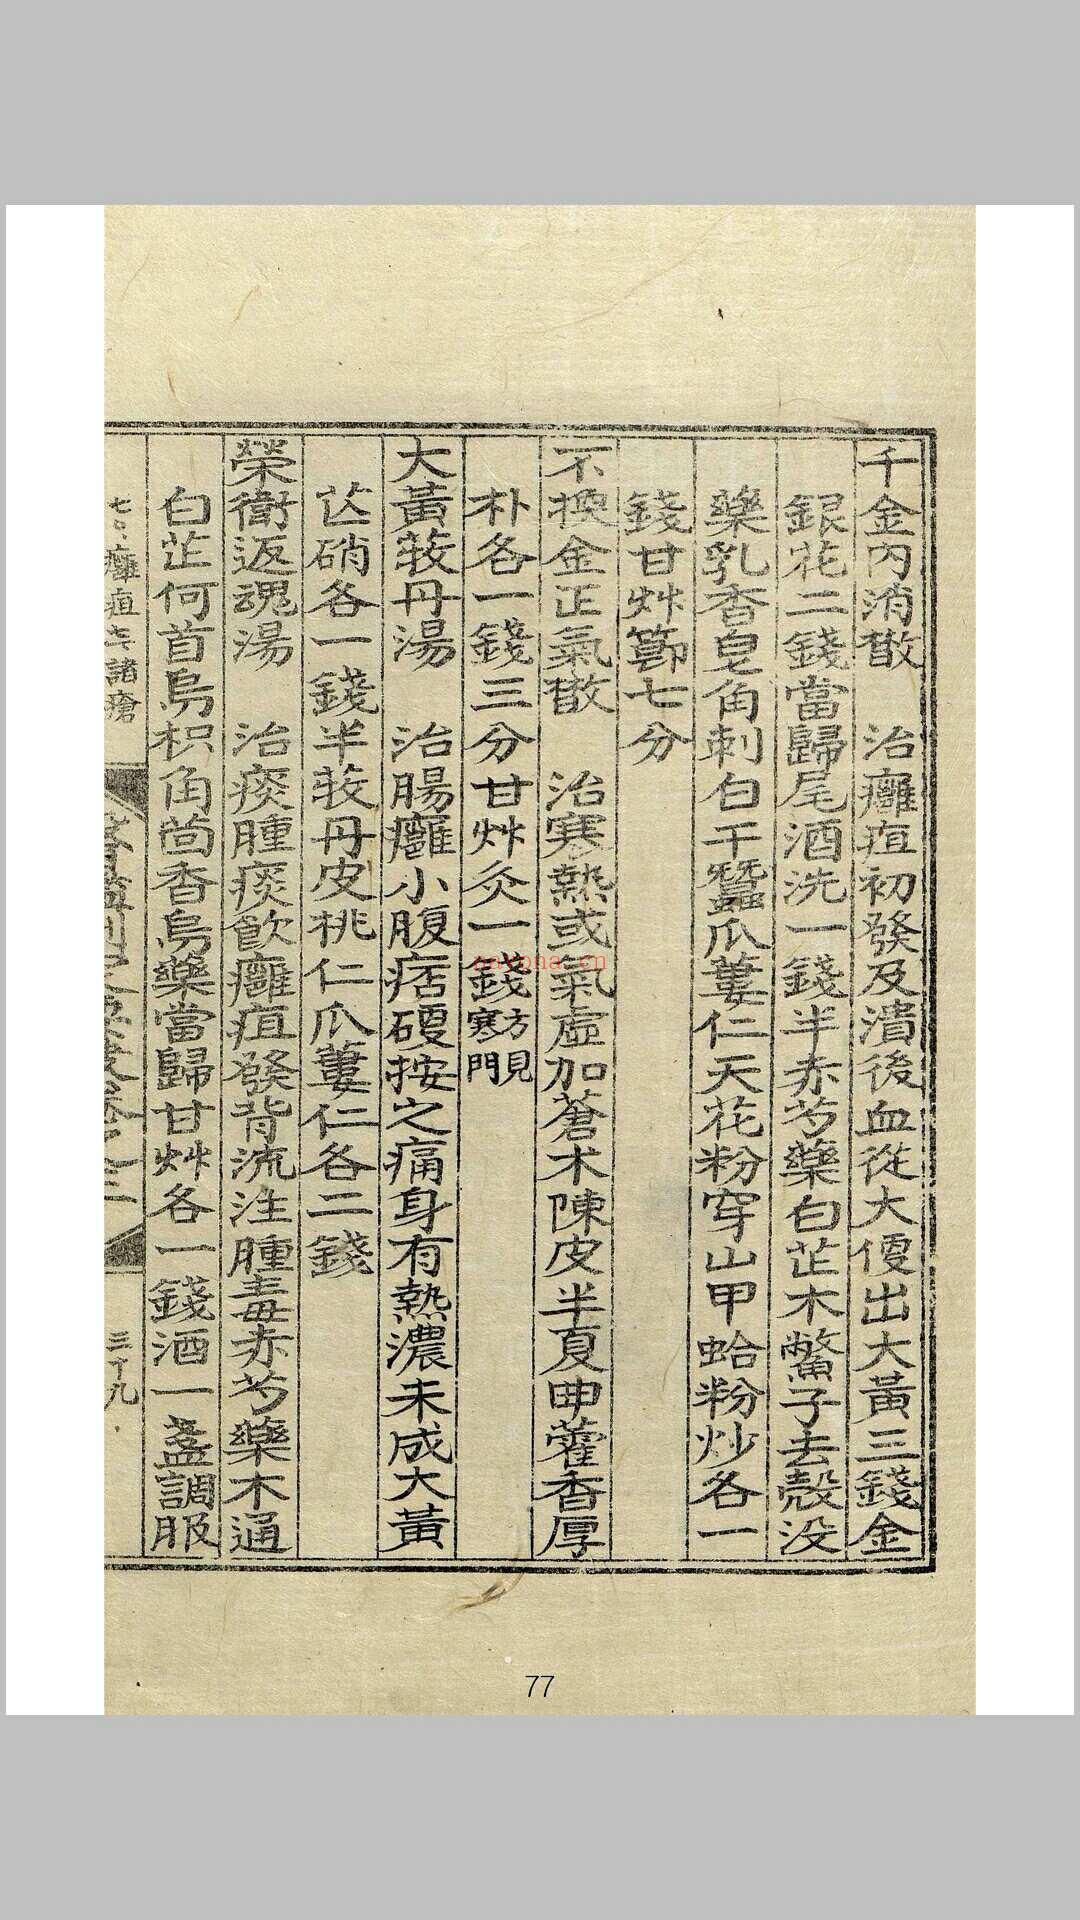 千金内消散 治癰疽初發及潰後血從大便出大黃三錢金
銀花二錢當歸尾酒洗一錢半赤芍藥白芷木鱉子去殼没
藥乳香皂角刺白干蠶瓜蔞仁天花粉穿山甲蛤粉炒各一
錢甘艸節七分
不換金正氣散 治寒熱或氣虛加蒼朮陳皮半夏曲藿香厚
朴各一錢三分甘艸灸一錢方見寒門
大黃牧丹湯 治腸癰小腹痞硬按之痛身有熱濃未成大黃
芒硝各一錢半牧丹皮桃仁瓜蔞仁各二錢
榮衛返魂湯 治痰腫痰飮癰疽發背流注腫毒赤芍藥木通
白芷何首烏枳角茴香烏藥當歸甘艸各一錢酒一盞調服
癰疽 諸瘡
三十九
eayona.cn
77